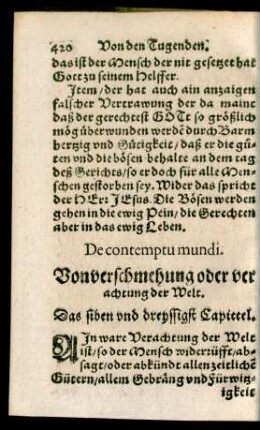 420 Von den Tugenden.
das ist der Mensch der nit gesetzet hat
Gott zu seinem Helffer.
Item/ der hat auch ain anzaigen
falscher Vertrawung der da maint
daß der gerechtest GOTt so größlich
mög überwunden werdē durch Barm
hertzig vnd Gütigkeit/ daß er die gü-
ten vnd die bösen behalte an dem tag
deß Gerichts/ so er doch für alle Men-
schen gestorben sey. Wider das spricht
der HErr JEsus. Die Bösen werden
gehen in die ewig Pein/ die Gerechten
aber in das ewig Leben.
De contemptu mundi.
Von verschmehung oder ver
achtung der Welt.
Das siben vnd dreyssigst Capittel.
AIn ware Verachtung der Welt
ist/ so der Mensch widerüfft/ ab-
sagt/ oder abkündt allen zeitlichē
Gütern/ allem Gebräng vnd Fürwitz-
igkeit